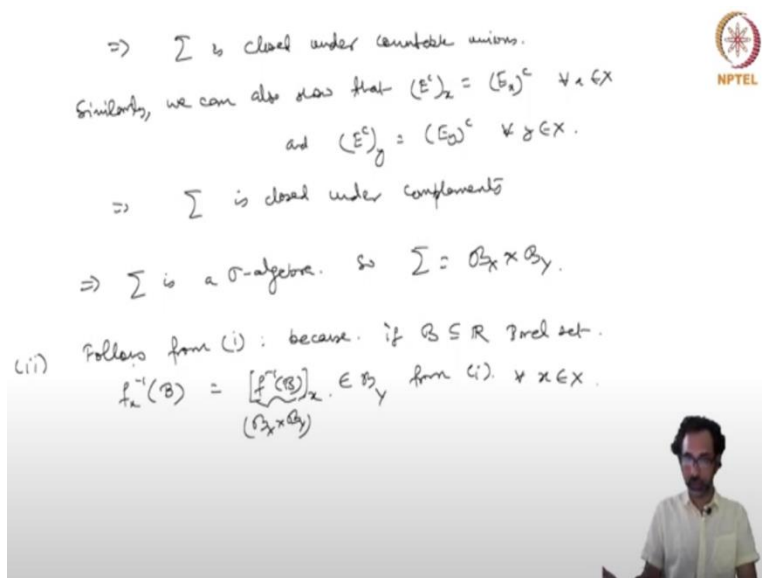 => Σ is closed under countable unions.
NPTEL
Similarly, we can also show that (Eᶜ)ₓ = (Eₓ)ᶜ ∀ x ∈ X
and (Eᶜ)_y = (E_y)ᶜ ∀ y ∈ X.
=> Σ is closed under complements
=> Σ is a σ-algebra. So Σ = 𝓑_X × 𝓑_Y.
(ii) Follows from (i) : because. if B ⊆ ℝ Borel set.
fₓ⁻¹(B) = [f⁻¹(B)]ₓ. ∈ 𝓑_Y from (i). ∀ x ∈ X.
(𝓑_X × 𝓑_Y)